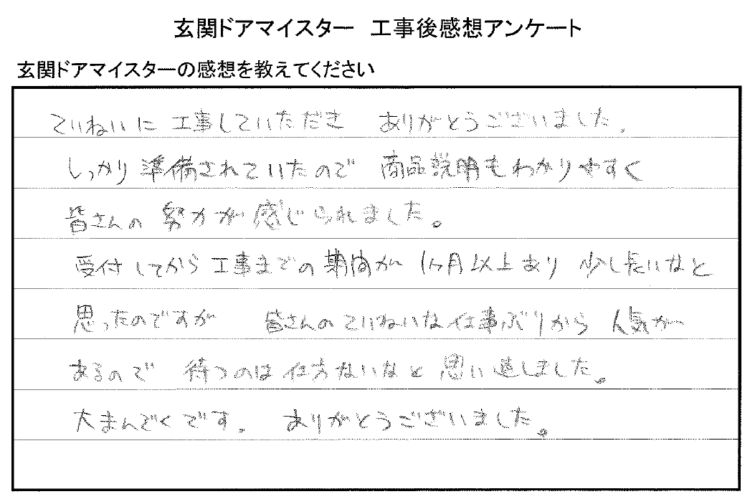 玄関ドアマイスター　工事後感想アンケート
玄関ドアマイスターの感想を教えてください
ていねいに 工事していただき ありがとうございました。
しっかり 準備されていたので 商品説明もわかりやすく
皆さんの 努力が 感じられました。
受付してから 工事までの 期間が 1ヶ月以上あり 少し長いなと
思ったのですが 皆さんのていねいな仕事ぶりから 人気が
あるので 待つのは 仕方ないなと 思い直しました。
大まんぞくです。 ありがとうございました。